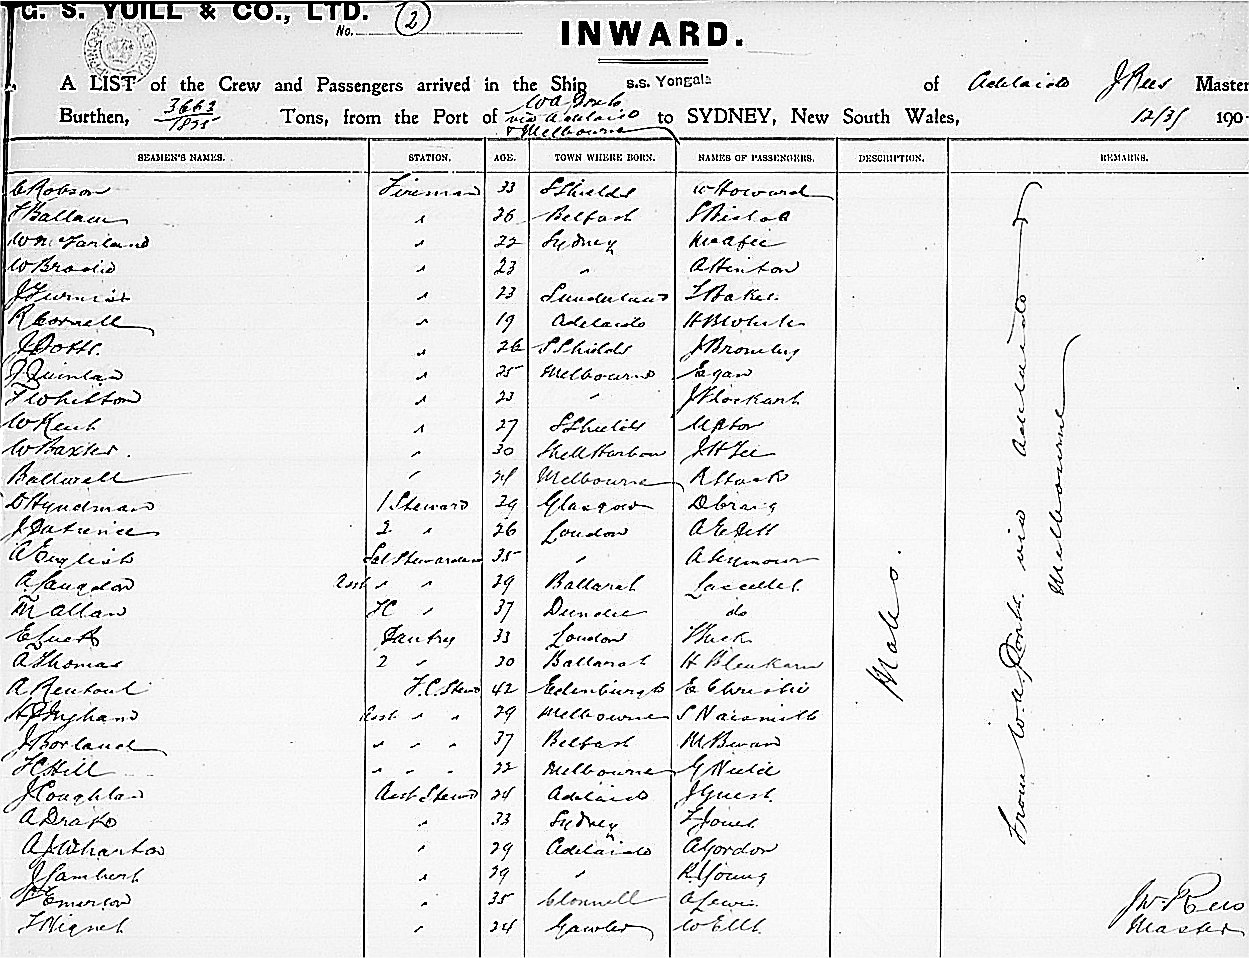 G. S. YUILL & CO., LTD.
No. (2)
INWARD.
A LIST of the Crew and Passengers arrived in the Ship s.s. Yongala of Adelaide J Rees Master
Burthen, 3663/1825 Tons, from the Port of W.A. Ports via Adelaide & Melbourne to SYDNEY, New South Wales, 190
SEAMEN'S NAMES. STATION. AGE. TOWN WHERE BORN. NAMES OF PASSENGERS. DESCRIPTION. REMARKS.
C Robson Fireman 33 S Shields W Howard
26 Belfast
W McFarland " 22 Sydney McAfee
W Brodie " 23 " A Hinton
" 23 Sunderland Baker
R Cornell " 19 Adelaide H B White
J Dotts " 26 S Shields J Bromley
J Quinlan " 25 Melbourne Egan
F Whitton " 23 " J Lockart
W Keith " 27 S Shields
W Baxter. " 30 Shell Harbour J H Lee
" 24 Melbourne R Hack
D Hyndman 1 Steward 29 Glasgow D Craig
2 " 26 London
A English Stewardess 35 " A Seymour
A Langdon Asst " " 29 Ballarat
M Allan " 37 Dundee do
Pantry 33 London
A Thomas 2 " 20 Ballarat H Blenkarn
A Rentoul F.C. Stewd 42 Edinburgh E Christie
H Ingham Asst " " 29 Melbourne S Naismith
J Borland " " " 37 Belfast M Bwan
H Hill " " " 22 Melbourne G Nield
J Coughlan Asst Stewd 24 Adelaide J Guest
A Drake " 33 Sydney Jones
A J Wharton " 29 Adelaide A Gordon
J Lambert " 29 " K Young
Emerson " 35 Clonnell A Lewis
" 24 Gawler W Ellt
Males.
From W.A. Ports. via Adelaide &
Melbourne
J W Rees
Master